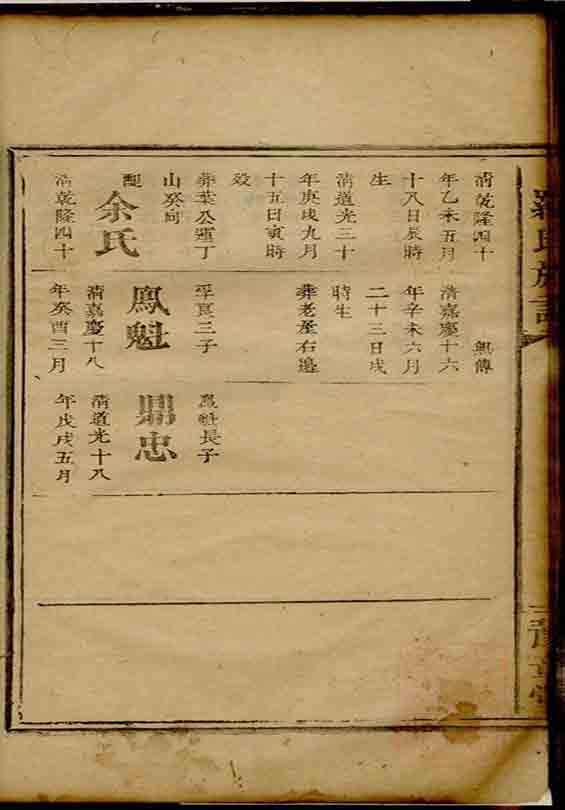 羅氏族譜
清乾隆四十
年乙未五月
十八日辰時
生
清道光三十
年庚戌九月
十五日寅時
歿
葬葉公運丁
山癸向
配
余氏
清乾隆四十
無傳
清嘉慶十六
年辛未六月
二十三日戌
時生
葬老屋右邊
孚㒷三子
鳳魁
清嘉慶十八
年癸酉三月
鳳魁長子
鼎忠
清道光十八
年戊戌五月
豫章堂